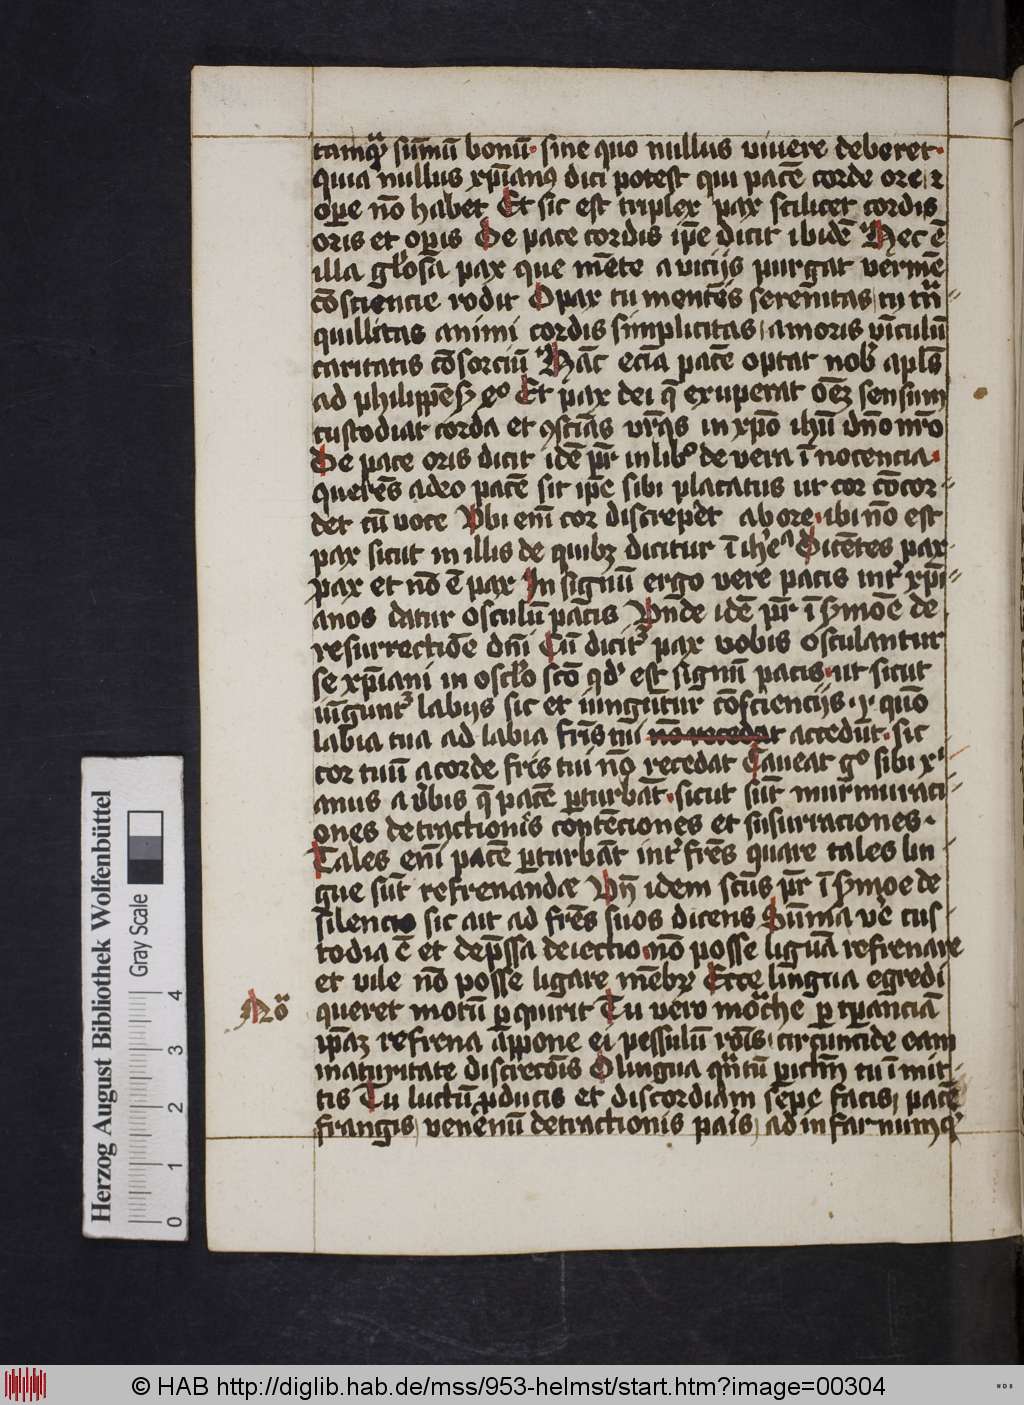 tamqꝫ sūmū bonū· sine quo nullus vivere deberet·
quia nullus xp̄ianꝰ dici potest qui pacē corde ore ⁊
oꝑe nō habet Et sic est triplex pax scilicet cordis
oris et oꝑis De pace cordis ip̄e dicit ibidē Hec ē
illa gl̓osa pax que mēte a vicijs purgat vermē
cōsciencie rodit O pax tu mentēs serenitas / tu tᷓn
quillitas animi cordis simplicitas / amoris vīculū
caritatis cōsorciū Hāc eciā pacē optat nob̓ apl̄s
ad philippēs 4º Et pax dei q̄ exuperat oēꝫ sensum
custodiat corda et ꝯsciās vr̄as in xp̄o ihū dn̄o nr̄o
De pace oris dicit idē pr̄ in lib̓º de vera īnocencia·
querēs adeo pacē sit ip̄e sibi placatus ut cor cōcor
det cū voce Vbi em̄ cor discrepet ab ore· ibi nō est
pax sicut in illis de quibꝫ dicitur ī ihe͛ª Dicētes pax
pax et nō ē pax In signū ergo vere pacis int̓ xp̄i
anos datur osculū pacis Vnde idē pr̄ ī ẜmōe de
resurrectiōe dn̄i Cū dicit͛ pax vobis osculantur
se xp̄iani in oscl̓o scō qd̓ est signū pacis· ut sicut
iūgunt͛ labijs sic et iungūtur cōsciencijs· ⁊ quō
labia tua ad labia fr̄is tui nō recedat accedūt· sic
cor tuū a corde fr̄is tui nō recedat Caveat gº sibi xᵖ̓
anus a v̓bis q̄ pacē ꝑturbāt· sicut sūt murmuraci
ones detractionis cōntēciones et susurraciones·
Tales em̄ pacē ꝑturbāt int̓ fr̄es quare tales lin
gue sūt refrenande Vn̄ idem scūs pr̄ ī ẜmoe de
silencio sic ait ad fr̄es suos dicens Sūma ve͛ cus
todia ē et dep̄ssa deiectio· nō posse liguā refrenare
et vile nō posse ligare mēbꝝ Ecce līngua egredi
Nōᵃ
queret motū ꝑqu̓rit Tu vero moᷓche ꝑ tꝑanciā
ip̄aꝫ refrena appone ei pessulū roīs· circūncide eam
maturitate discrecōis O lingua qᷓntū ꝑiclm̄ tu īmit
tis Tu luctū ꝓducis et discordiam sepe facis / pacē
frangis / venenū detractionis paris / ad infarnumqꝫ
Herzog August Bibliothek Wolfenbüttel
Gray Scale
0 1 2 3 4
© HAB http://diglib.hab.de/mss/953-helmst/start.htm?image=00304